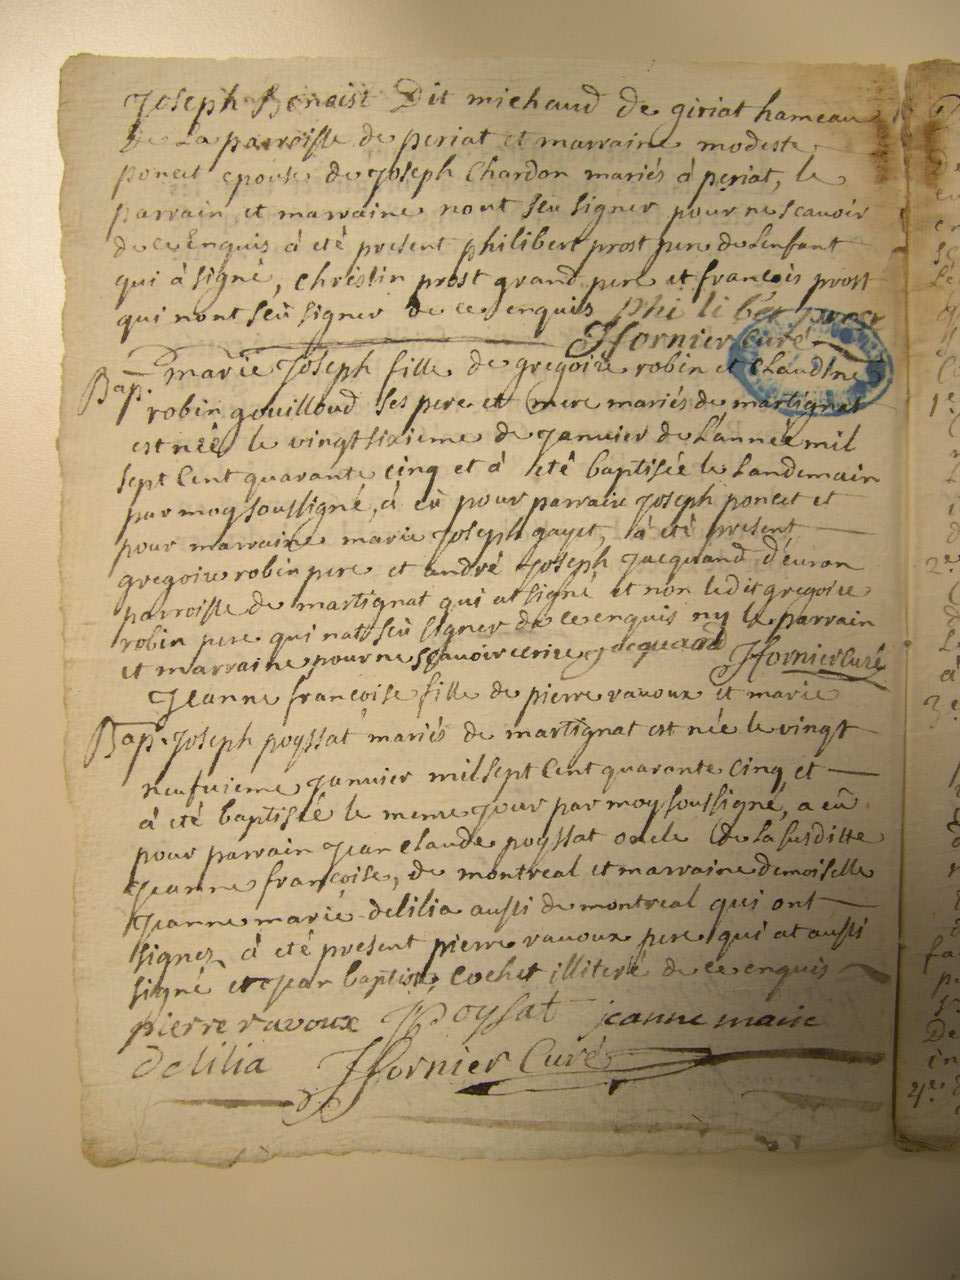 Joseph Benoist Dit michaud de giriat hameau
De La parroisse de periat et marraine modeste
poncet epouse de Joseph Chardon mariés á periat, le
parrain et marraine nont scu signer pour ne scauoir
de ce Enquis á eté present philibert prost pere de Lenfant
qui á signé, Christin prost grand pere et francois prost
qui nont scû signer de ce enquis phi li ber prost
Hornier Curé
Bap. marie Joseph fille de gregoire robin et Claudine
robin gouilloud ses pere et mere mariés de martignat
est née le vingt sixieme de Januier de L'année mil
sept Cent quarante Cinq et á eté baptisée le Landemain
par moy soussigné, á eû pour parrain Joseph poncet et
pour marraine marie Joseph gayet, á été present
gregoire robin pere et andré Joseph Jacquand d'euron
parroisse de martignat qui at signé et non ledit gregoire
robin pere qui nat scû signer de ce enquis ny le parrain
et marraine pour ne scauoir ecrire Jacquand Hornier Curé
Jeanne francoise fille de pierre rauoux et marie
Bap. Joseph poyssat mariés de martignat est née le vingt
neufuieme Januier mil sept Cent quarante Cinq et
á eté baptisée le meme Jour par moy soussigné, a eû
pour parrain Jean claude poyssat oncle de La susditte
Jeanne francoise, de montreal et marraine demoiselle
Jeanne marie delilia aussi de montreal qui ont
signez á eté present pierre rauoux pere qui at aussi
signé et Jean baptiste Cochet illiteré de ce enquis
pierre ravoux Poysat jeanne marie
delilia Hornier Curé